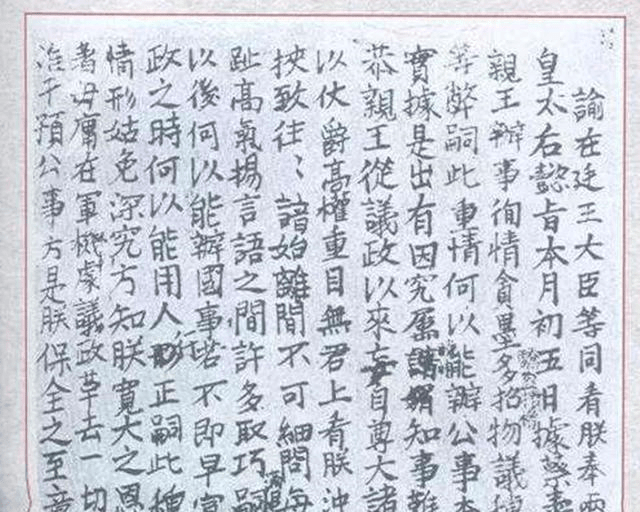 諭在廷王大臣等同看朕奉兩
皇太后懿旨本月初五日據蔡壽
親王辦事徇情貪墨多招物議
等弊嗣此重情何以能辦公事
實據是出有因究屬知事難
恭親王從議政以來妄自尊大諸
以仗爵高權重目無君上看朕沖
挾致往：諳始離間不可細問每
趾高氣揚言語之間許多取巧
以後何以能辦國事若不即早宣
政之時何以能用人行正嗣此種
情形姑免深究方知朕寬大之恩
著毋庸在軍機處議政革去一切
准干預公事方是朕保全之至意